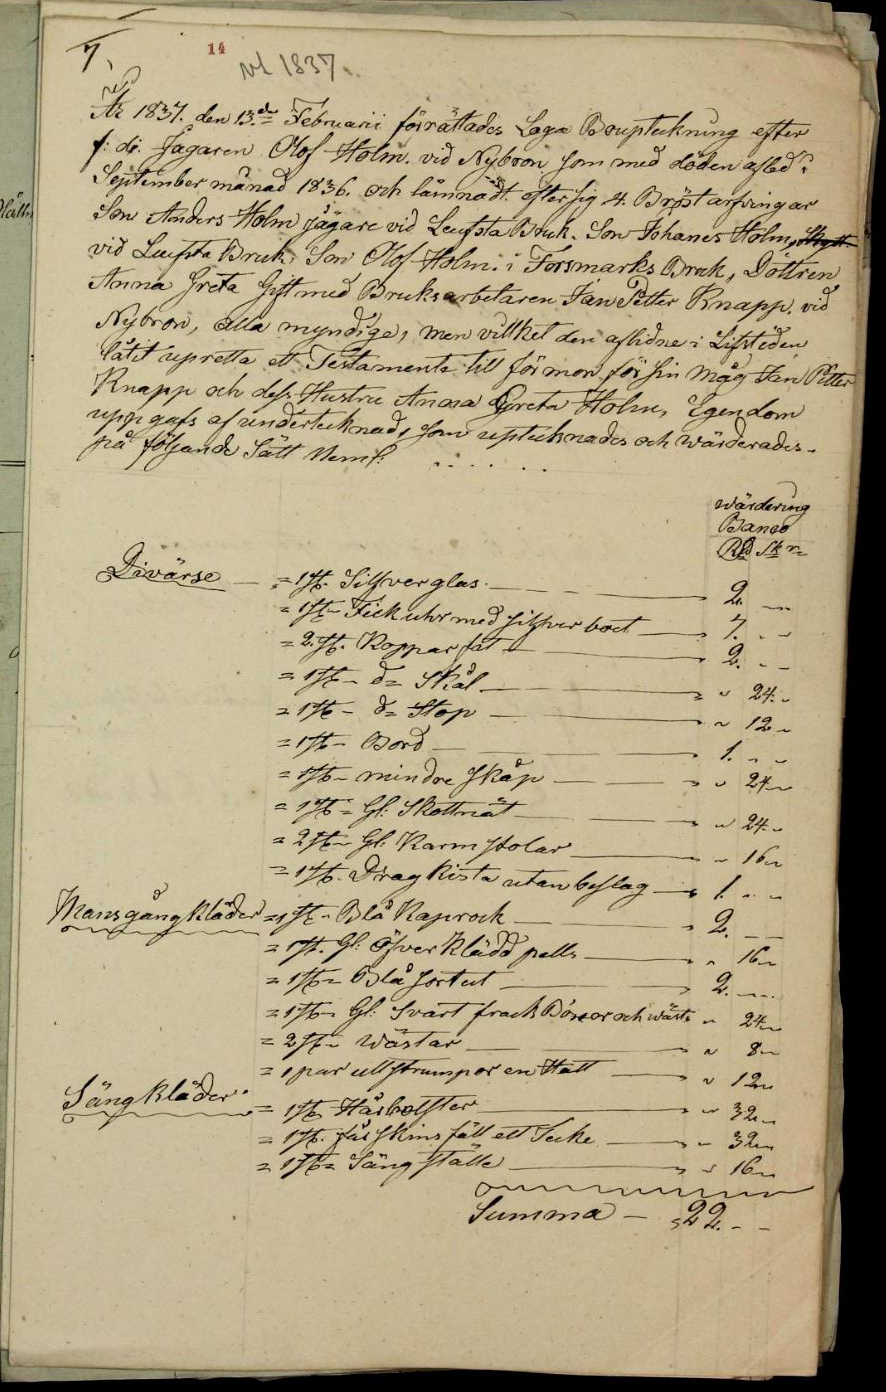 7.
14
1837.
År 1837. den 13.de Februarii förrättades Laga Boupteckning efter
f: d: Jägaren Olof Holm. vid Nybron som med döden afled
September månad 1836. och lämnadt efter sig 4. Bröstarfvingar
Son Anders Holm Jägare vid Leufsta Bruk. Son Johanes Holm,
vid Leufsta Bruk, Son Olof Holm. i Forsmarks Bruk, Döttren
Anna Greta Gift med Bruksarbetaren Jan Petter Knapp. vid
Nybron, alla myndige, men villket den aflidne i Lifstiden
låtit upretta ett Testamente till förmon för sin måg Jan Petter
Knapp och dess Hustru Anna Greta Holm, Egendom
uppgafs af undertecknad, som uptecknades och wärderades
på följande Sätt Neml:
wärdering
Banco
Rd Sk r
Divärse = 1 st. Silfverglas. 2.
= 1 st Fickuhr med silfver boet 7.
= 2. st. Kopparfat 2.
= 1 st d= Skål " 24.
= 1 st d= Stop " 12
= 1 st Bord 1.
= 1 st mindre skåp " 24
= 1 st Gl: Skottnät " 24.
= 2 st Gl: Karmstolar " 16
= 1 st. Dragkista utan beslag 1.
Mansgångkläder = 1 st Blå Kaprock 2.
= 1 st. Gl: öfver klädd pells " 16
= 1 st Blå sortut 2.
= 1 st Gl: Svart frack Böxor och wäst " 24
= 2 st wästar " 8
= 1 par ullstrumpor en Hatt " 12
Sängkläder = 1 st Hårbolster " 32
= 1 st. fårskins fäll ett Tecke " 32
= 1 st= Sängställe " 16
Summa — 22.